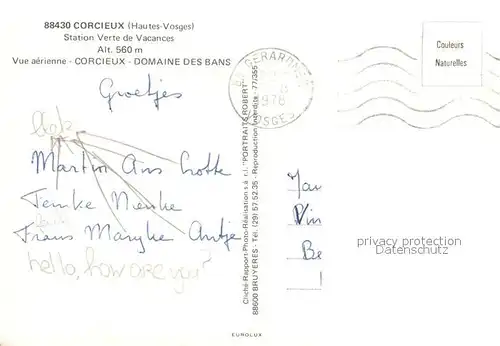 88430 CORCIEUX (Hautes-Vosges)
Station Verte de Vacances
Alt. 560 m
Vue aérienne - CORCIEUX - DOMAINE DES BANS
Groetjes
Martin Ans Lotte
Femke Menke
Frans Maryke Antje
hello, how are you?
Cliché-Rapport-Photo-Réalisation s.a r.l. "PORTRAITS ROBERT"
88600 BRUYERES - Tél. (29) 57.52.35 - Reproduction interdite - 77/355
GERARDMER
1978
VOSGES
Couleurs
Naturelles
Jan
Vin
Be
privacy protection
Datenschutz
EUROLUX